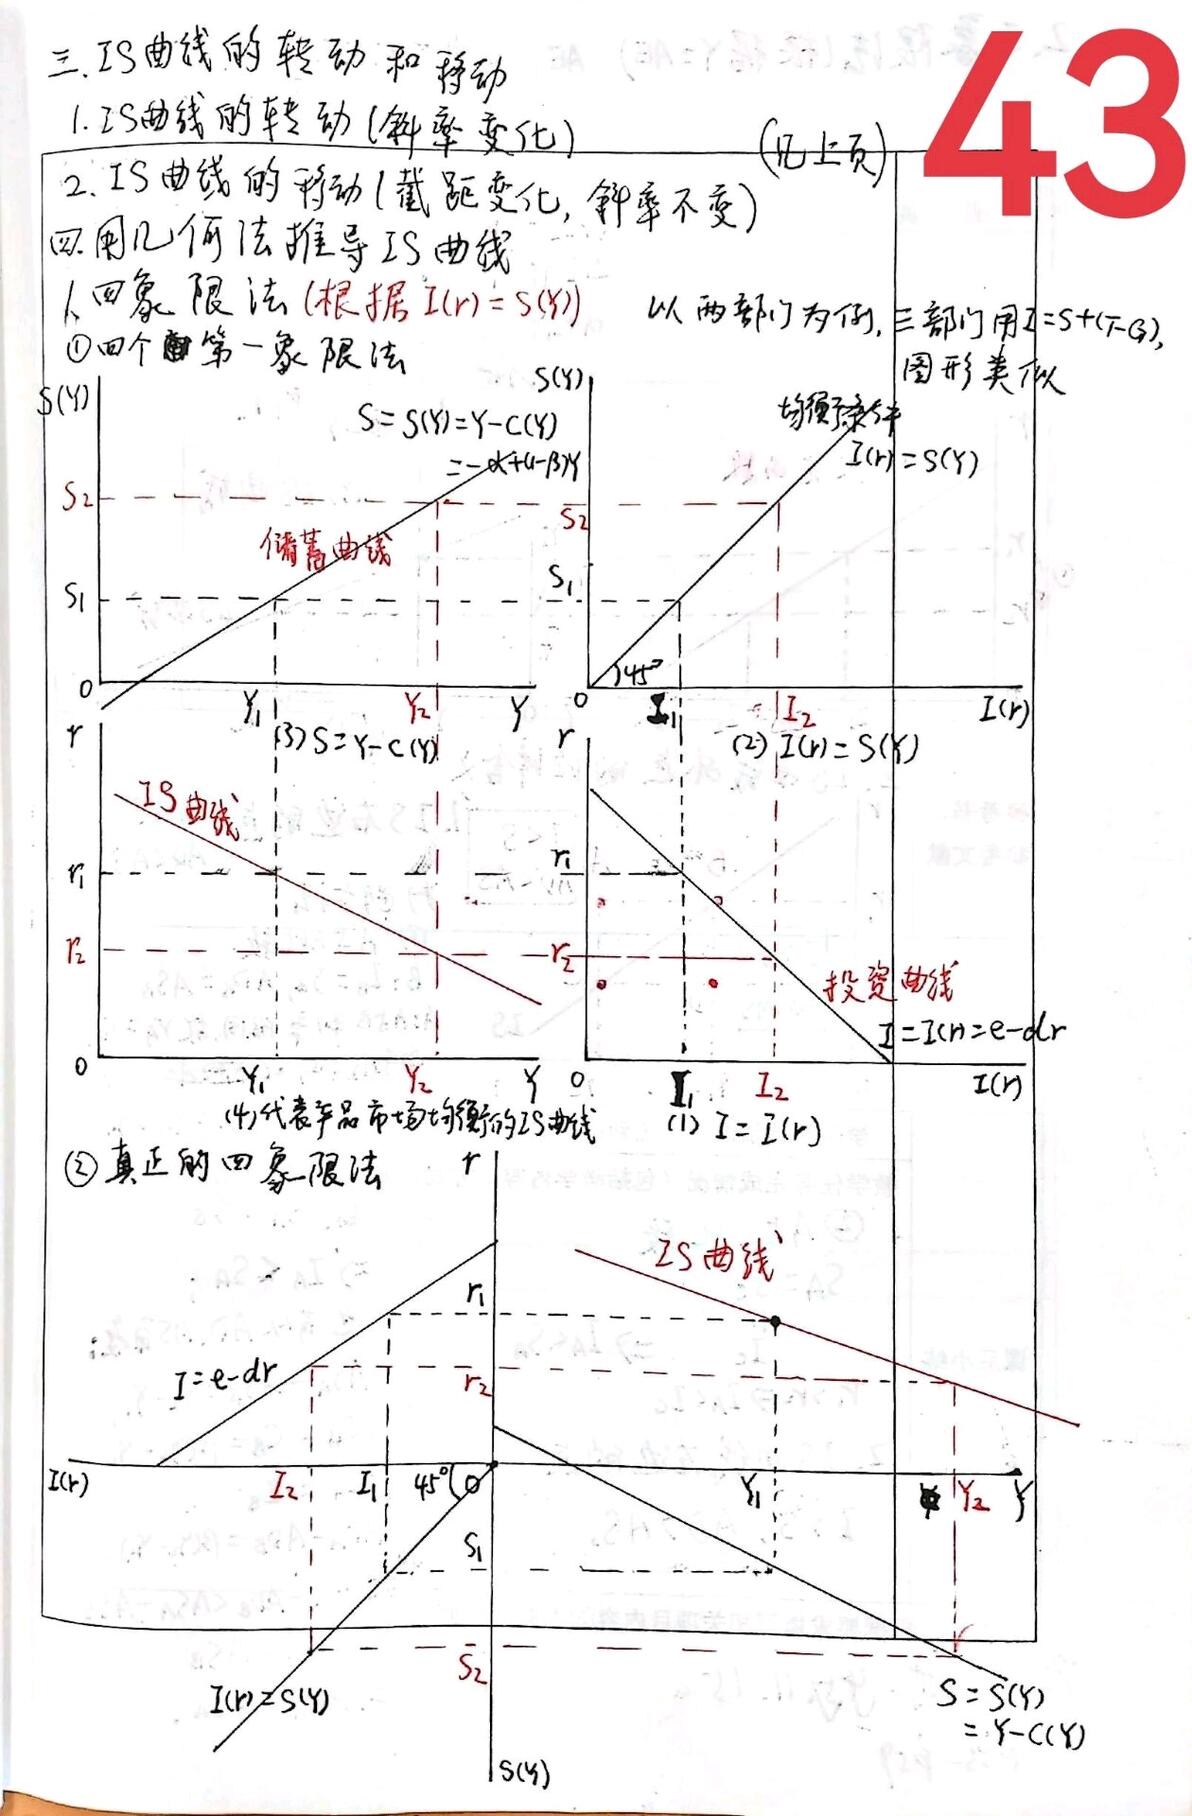 43
三.IS曲线的转动和移动
1.IS曲线的转动(斜率变化)
(见上页)
2.IS曲线的移动(截距变化,斜率不变)
四.用几何法推导IS曲线
1.四象限法(根据I(r)=S(Y))
以两部门为例,三部门用I=S+(T-G),
图形类似
①四个第一象限法
S(Y)
S=S(Y)=Y-C(Y)
=-α+(1-β)Y
S2
储蓄曲线
S1
O
Y1
Y2
Y
(3)S=Y-C(Y)
S(Y)
均衡条件
I(r)=S(Y)
S2
S1
45°
O
I1
I2
I(r)
(2)I(r)=S(Y)
r
IS曲线
r1
r2
O
Y1
Y2
Y
(4)代表产品市场均衡的IS曲线
r
r1
r2
投资曲线
I=I(r)=e-dr
O
I1
I2
I(r)
(1)I=I(r)
②真正的四象限法
r
IS曲线
r1
I=e-dr
r2
I(r)
I2
I1
45°
O
Y1
Y2
Y
S1
S2
I(r)=S(Y)
S=S(Y)
=Y-C(Y)
S(Y)